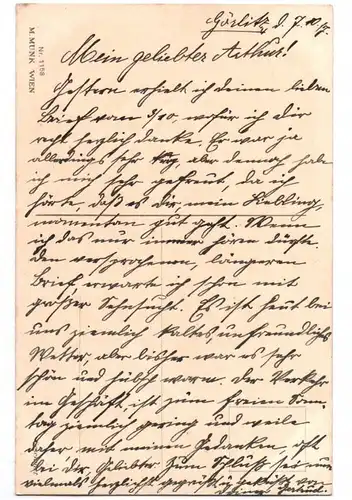 Nr. 1158
M. MUNK, WIEN
Görlitz, d. 7.10.17.
Mein geliebter Arthur!
Gestern erhielt ich deinen lieben
Brief vom 3/10, wofür ich dir
recht herzlich danke. Er war ja
allerdings sehr aber dennoch habe
ich mich sehr gefreut, da ich
hörte, daß es dir, mein Liebling,
momentan gut geht. Wenn
ich das nur immer hören dürfte.
Den versprochenen, längeren
Brief, erwarte ich schon mit
großer Sehnsucht. Es ist heut bei
uns ziemlich kaltes unfreundliches
Wetter, aber bisher war es sehr
schön und hübsch warm. Der Verkehr
im Geschäft, ist zum freien Sonn-
tag ziemlich gering und weile
daher mit meinen Gedanken oft
bei dir, Geliebter. Zum Schluß sei nun
vielmals herzlichst gegrüßt u. geküßt von
deiner